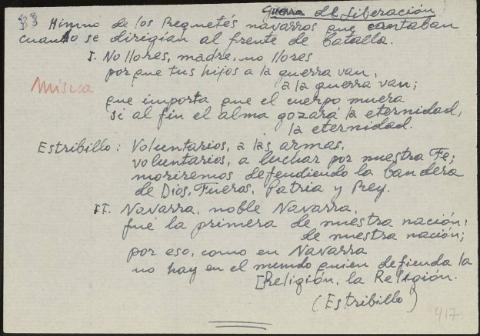 Guerra de Liberación
33 Himno de los Requetés navarros que cantaban
cuando se dirigian al frente de batalla.
I. No llores, madre, no llores
porque tus hijos a la guerra van,
a la guerra van;
Música
que importa que el cuerpo muera
si al fin el alma gozará la eternidad,
la eternidad.
Estribillo: Voluntarios, a las armas,
voluntarios, a luchar por nuestra Fe;
moriremos defendiendo la bandera
de Dios, Fueros, Patria y Rey.
II. Navarra, noble Navarra,
fue la primera de nuestra nación,
de nuestra nación;
por eso, como en Navarra
no hay en el mundo quien defienda la
[Religión, la Religión.
(Estribillo)
417